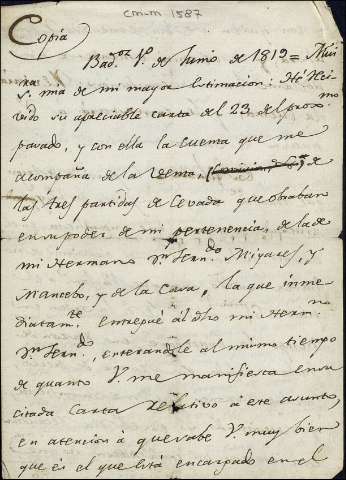 cm-m 1587
Copia
Bad.oz 1.º de Junio de 1819 = Mui
S.ra mia de mi mayor estimacion: Hé Rei-
vido su apreciable carta del 23 del prox.mo
pasado, y con ella la cuenta que me
acompaña de la venta, de
las tres partidas de Cevada que obraban
en su poder de mi pertenencia, de la de
mi Hermano D.n Fern.do Miyares, y
Mancebo, y de la Casa, la que inme
diatam.te entregué al dho mi Herm.no
D.n Fern.do, enterandole al mismo tiempo
de quanto V. me manifiesta en su
citada Carta relativo á este asunto,
en atencion á que sabe V. muy bien
que es el que está encargado en el